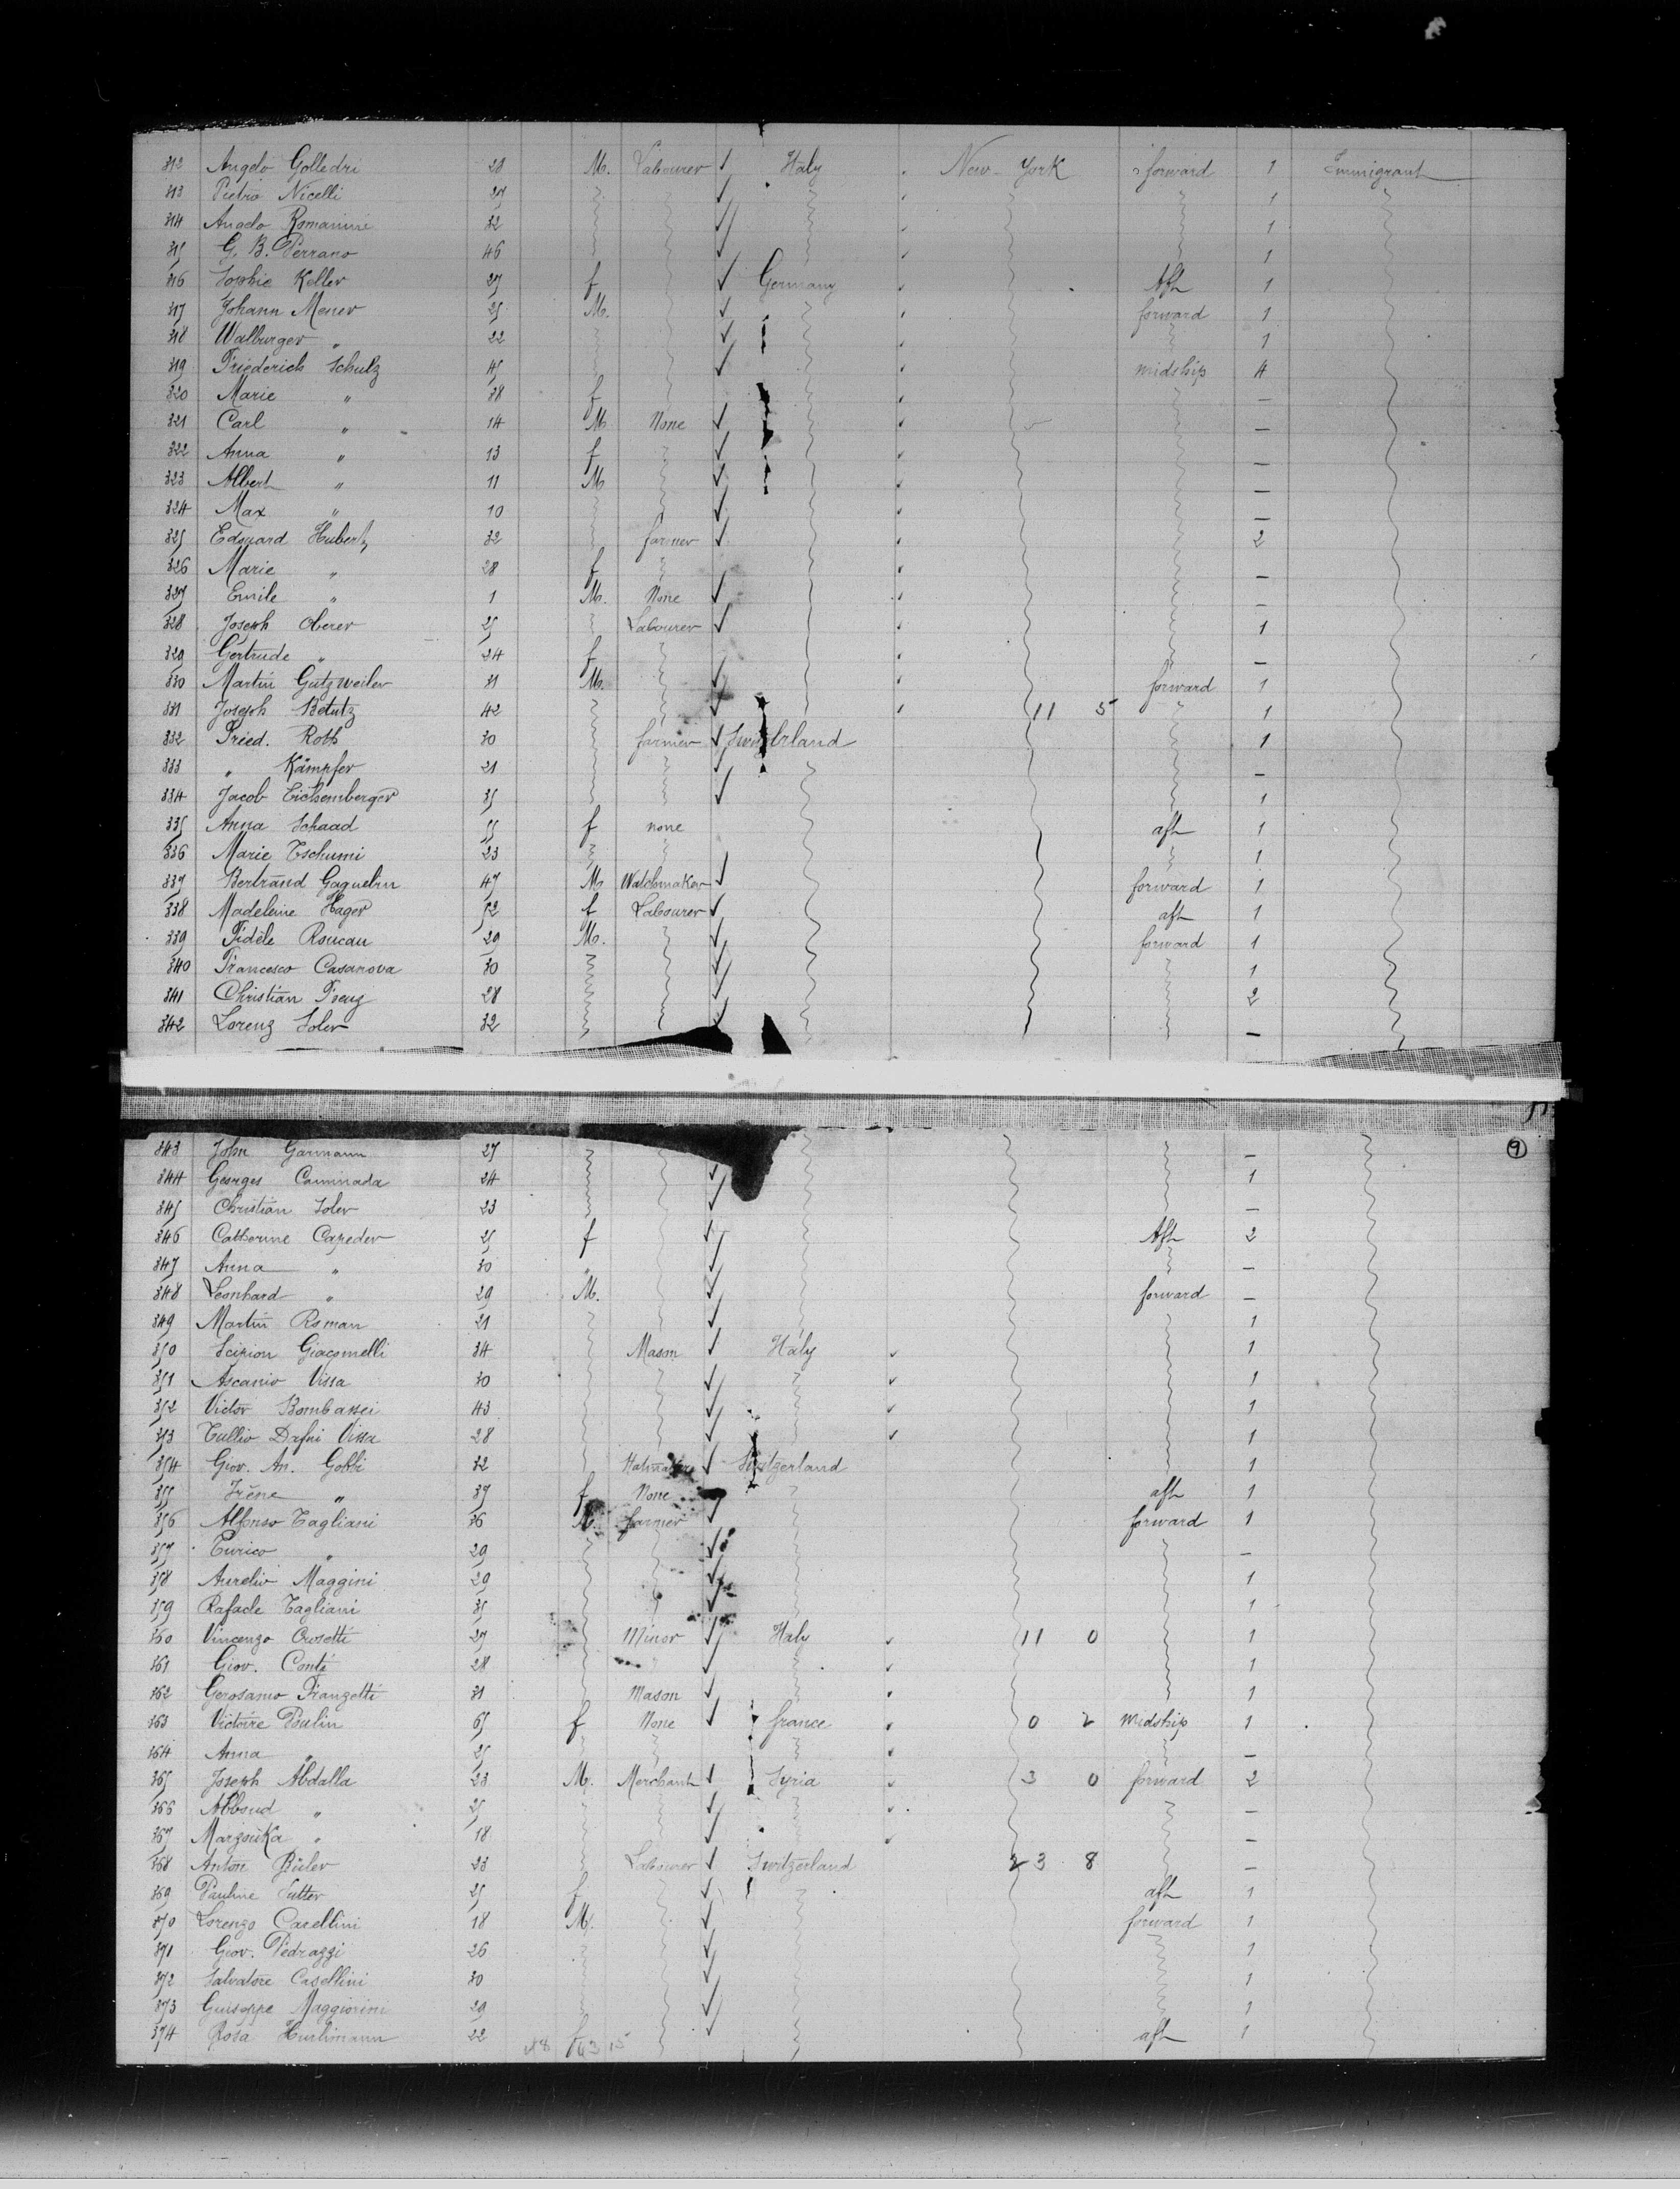 312 Angelo Golledri 28 M. Labourer ✓ Italy New-York forward 1 Immigrant
313 Pietro Nicelli 27 ✓ 1
314 Angelo Romanini 32 ✓ 1
315 G. B. Perrano 46 ✓ 1
316 Sophie Keller 27 f ✓ Germany Aft 1
317 Johann Mener 25 M. ✓ forward 1
318 Walburger " 22 ✓ 1
319 Friederich Schulz 45 ✓ midship 4
320 Marie " 38 f —
321 Carl " 14 M None ✓ —
322 Anna " 13 f ✓ —
323 Albert " 11 M ✓ —
324 Max " 10 ✓ —
325 Edouard Hubert 32 farmer ✓ 2
326 Marie " 28 f —
327 Emile " 1 M. None ✓ —
328 Joseph Oberer 25 Labourer ✓ 1
329 Gertrude " 24 f —
330 Martin Gutzweiler 31 M. ✓ forward 1
331 Joseph Betutz 42 ✓ 11 5 1
332 Fried. Roth 30 farmer ✓ Switzerland 1
333 " Kämpfer 21 ✓ —
334 Jacob Eichemberger 35 ✓ 1
335 Anna Schaad 55 f none aft 1
336 Marie Tschumi 23 1
337 Bertrand Gaguelin 47 M Watchmaker ✓ forward 1
338 Madeleine Hager 52 f Labourer ✓ aft 1
339 Fidèle Roucau 29 M. ✓ forward 1
340 Francesco Casanova 30 ✓ 1
341 Christian 28 ✓ 2
342 Lorenz Soler 32 ✓ —
9
343 John Garmann 27 —
344 Georges Caminada 24 ✓ 1
345 Christian Soler 23 ✓ —
346 Catherine Capeder 25 f ✓ Aft 2
347 Anna " 30 " ✓ —
348 Leonhard " 29 M. ✓ forward —
349 Martin Roman 21 ✓ 1
350 Scipion Giacomelli 34 Mason ✓ Italy 1
351 Ascanio Vissa 30 ✓ 1
352 Victor Bombassei 43 ✓ 1
353 Tullio Dafni Vissa 28 ✓ 1
354 Giov. An. Gobbi 32 ✓ Switzerland 1
355 Irène " 37 f None aft 1
356 Alfonso Tagliani 36 M. farmer ✓ forward 1
357 Enrico " 29 ✓ —
358 Aurelio Maggini 29 ✓ 1
359 Rafaele Tagliani 35 ✓ 1
360 Vincenzo Crosetti 27 Minor ✓ Italy 11 0 1
361 Giov. Conté 28 ✓ 1
362 Gerosamo Franzetti 31 Mason ✓ 1
363 Victoire Poulin 65 f None ✓ france 0 2 Midship 1
364 Anna " 25 —
365 Joseph Abdalla 23 M. Merchant ✓ Syria 3 0 forward 2
366 Abboud " 25 ✓ —
367 Marzouka " 18 ✓ —
368 Anton Büler 23 Labourer ✓ Switzerland 23 8 —
369 Pauline Sutter 25 f ✓ aft 1
370 Lorenzo Casellini 18 M. ✓ forward 1
371 Giov. Pedrazzi 26 ✓ 1
372 Salvatore Casellini 30 ✓ 1
373 Guiseppe Maggiorini 29 ✓ 1
374 Rosa Hurlimann 22 f ✓ aft 1
48 63 15